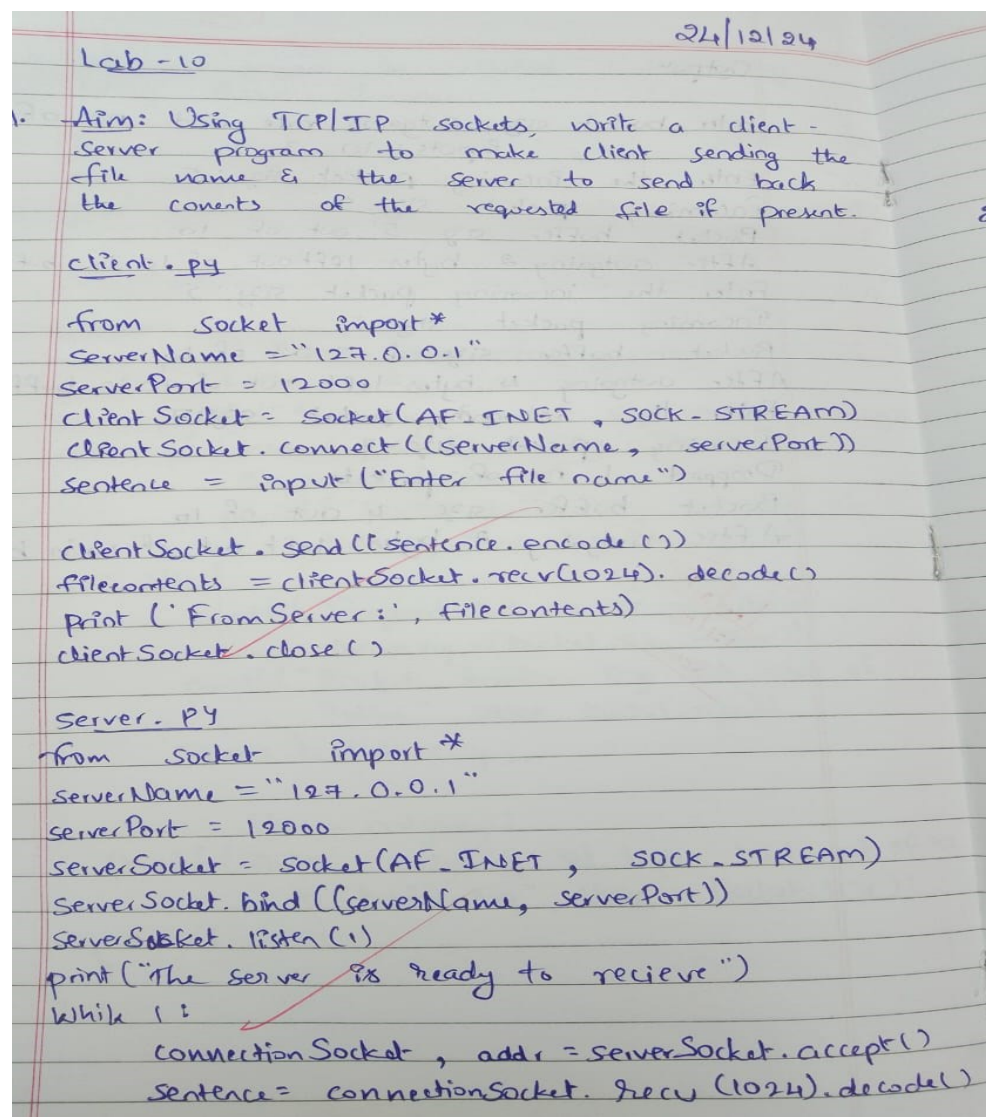 24/12/24
Lab - 10
1. Aim: Using TCP/IP sockets, write a client -
server program to make client sending the
file name & the server to send back
the conents of the requested file if present.
client.py
from socket import*
serverName = "127.0.0.1"
serverPort = 12000
clientSocket = socket(AF_INET, SOCK_STREAM)
clientSocket.connect((serverName, serverPort))
sentence = input("Enter file name")
clientSocket.send((sentence.encode())
filecontents = clientSocket.recv(1024).decode()
print ('FromServer:', filecontents)
clientSocket.close()
Server.py
from socket import*
serverName = "127.0.0.1"
serverPort = 12000
serverSocket = socket(AF_INET, SOCK_STREAM)
serverSocket.bind((serverName, serverPort))
serverSocket.listen(1)
print("The server is ready to recieve")
while 1:
connectionSocket, addr = serverSocket.accept()
sentence = connectionSocket.recv(1024).decode()